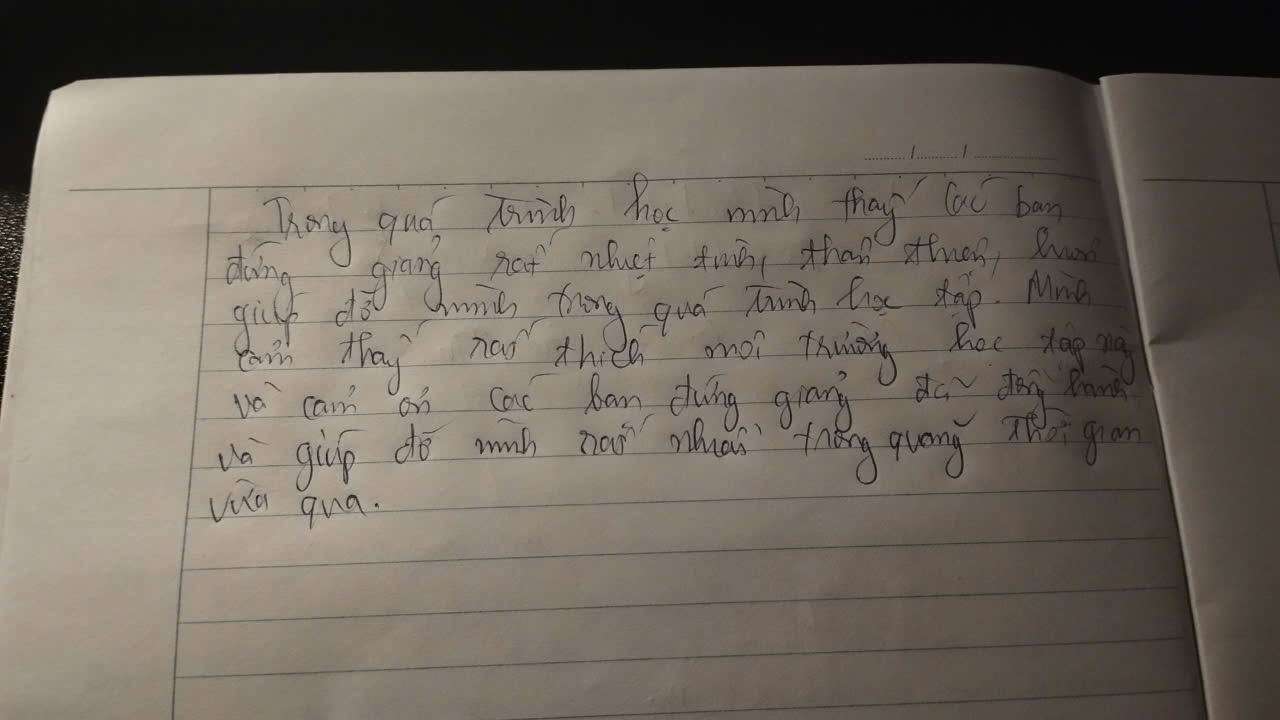 Trong quá trình học mình thấy các bạn
đứng giảng rất nhiệt tình, thân thiện, luôn
giúp đỡ mình trong quá trình học tập. Mình
cảm thấy rất thích môi trường học tập này
và cảm ơn các bạn đứng giảng đã đồng hành
và giúp đỡ mình rất nhiều trong quãng thời gian
vừa qua.